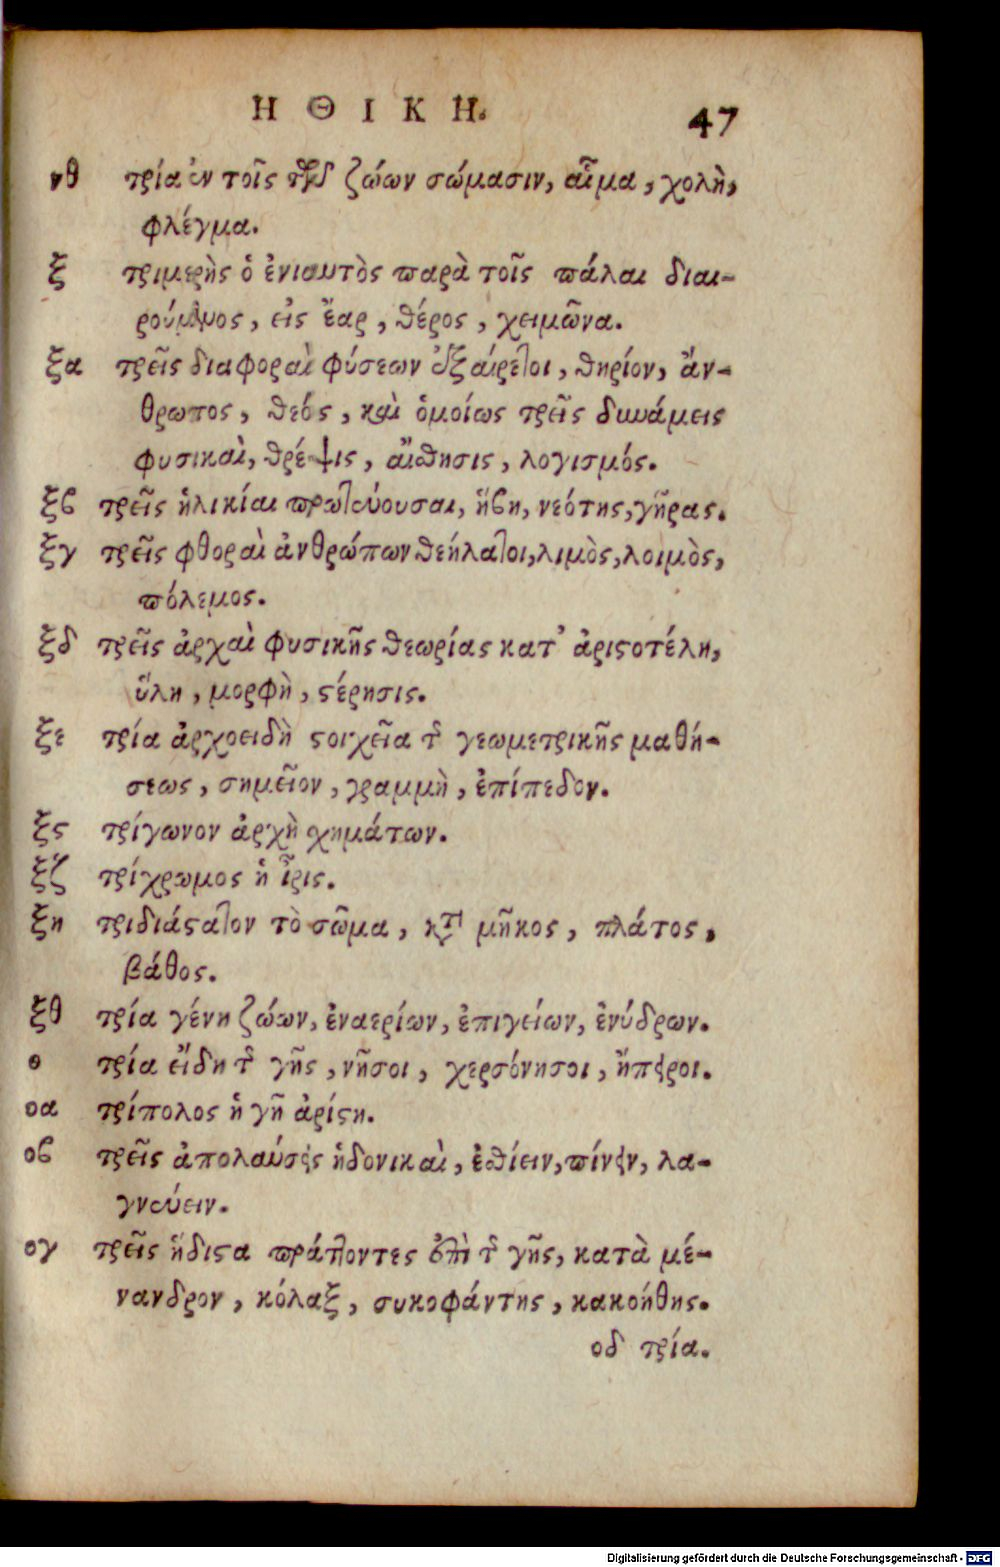 ΗΘΙΚΗ. 47
νθ τρία ἐν τοῖς τῶν ζώων σώμασιν, αἷμα, χολὴ,
φλέγμα.
ξ τριμερὴς ὁ ἐνιαυτὸς παρὰ τοῖς πάλαι διαι-
ρούμενος, εἰς ἔαρ, θέρος, χειμῶνα.
ξα τρεῖς διαφοραὶ φύσεων ἐξαίρετοι, θηρίον, ἄν-
θρωπος, θεός, καὶ ὁμοίως τρεῖς δυνάμεις
φυσικαὶ, θρέψις, αἴσθησις, λογισμός.
ξϐ τρεῖς ἡλικίαι πρωτεύουσαι, ἥϐη, νεότης, γῆρας.
ξγ τρεῖς φθοραὶ ἀνθρώπων θεήλατοι, λιμὸς, λοιμὸς,
πόλεμος.
ξδ τρεῖς ἀρχαὶ φυσικῆς θεωρίας κατ' ἀριστοτέλη,
ὕλη, μορφὴ, στέρησις.
ξε τρία ἀρχοειδῆ στοιχεῖα τῆς γεωμετρικῆς μαθή-
σεως, σημεῖον, γραμμὴ, ἐπίπεδον.
ξϛ τρίγωνον ἀρχὴ σχημάτων.
ξζ τρίχρωμος ἡ ἶρις.
ξη τριδιάστατον τὸ σῶμα, κατὰ μῆκος, πλάτος,
βάθος.
ξθ τρία γένη ζώων, ἐναερίων, ἐπιγείων, ἐνύδρων.
ο τρία εἴδη τῆς γῆς, νῆσοι, χερσόνησοι, ἤπειροι.
οα τρίπολος ἡ γῆ ἀρίστη.
οϐ τρεῖς ἀπολαύσεις ἡδονικαὶ, ἐσθίειν, πίνειν, λα-
γνεύειν.
ογ τρεῖς ἥδιστα πράττοντες ἐπὶ τῆς γῆς, κατὰ μέ-
νανδρον, κόλαξ, συκοφάντης, κακοήθης.
οδ τρία.
Digitalisierung gefördert durch die Deutsche Forschungsgemeinschaft - DFG